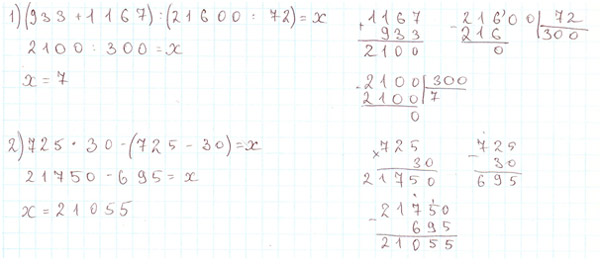 1) (933 + 1167) : (21600 : 72) = x
2100 : 300 = x
x = 7
+ 1167
933
2100
- 21600 | 72
216 | 300
0
- 2100 | 300
2100 | 7
0
2) 725 · 30 - (725 - 30) = x
21750 - 695 = x
x = 21055
× 725
30
21750
- 725
30
695
- 21750
695
21055